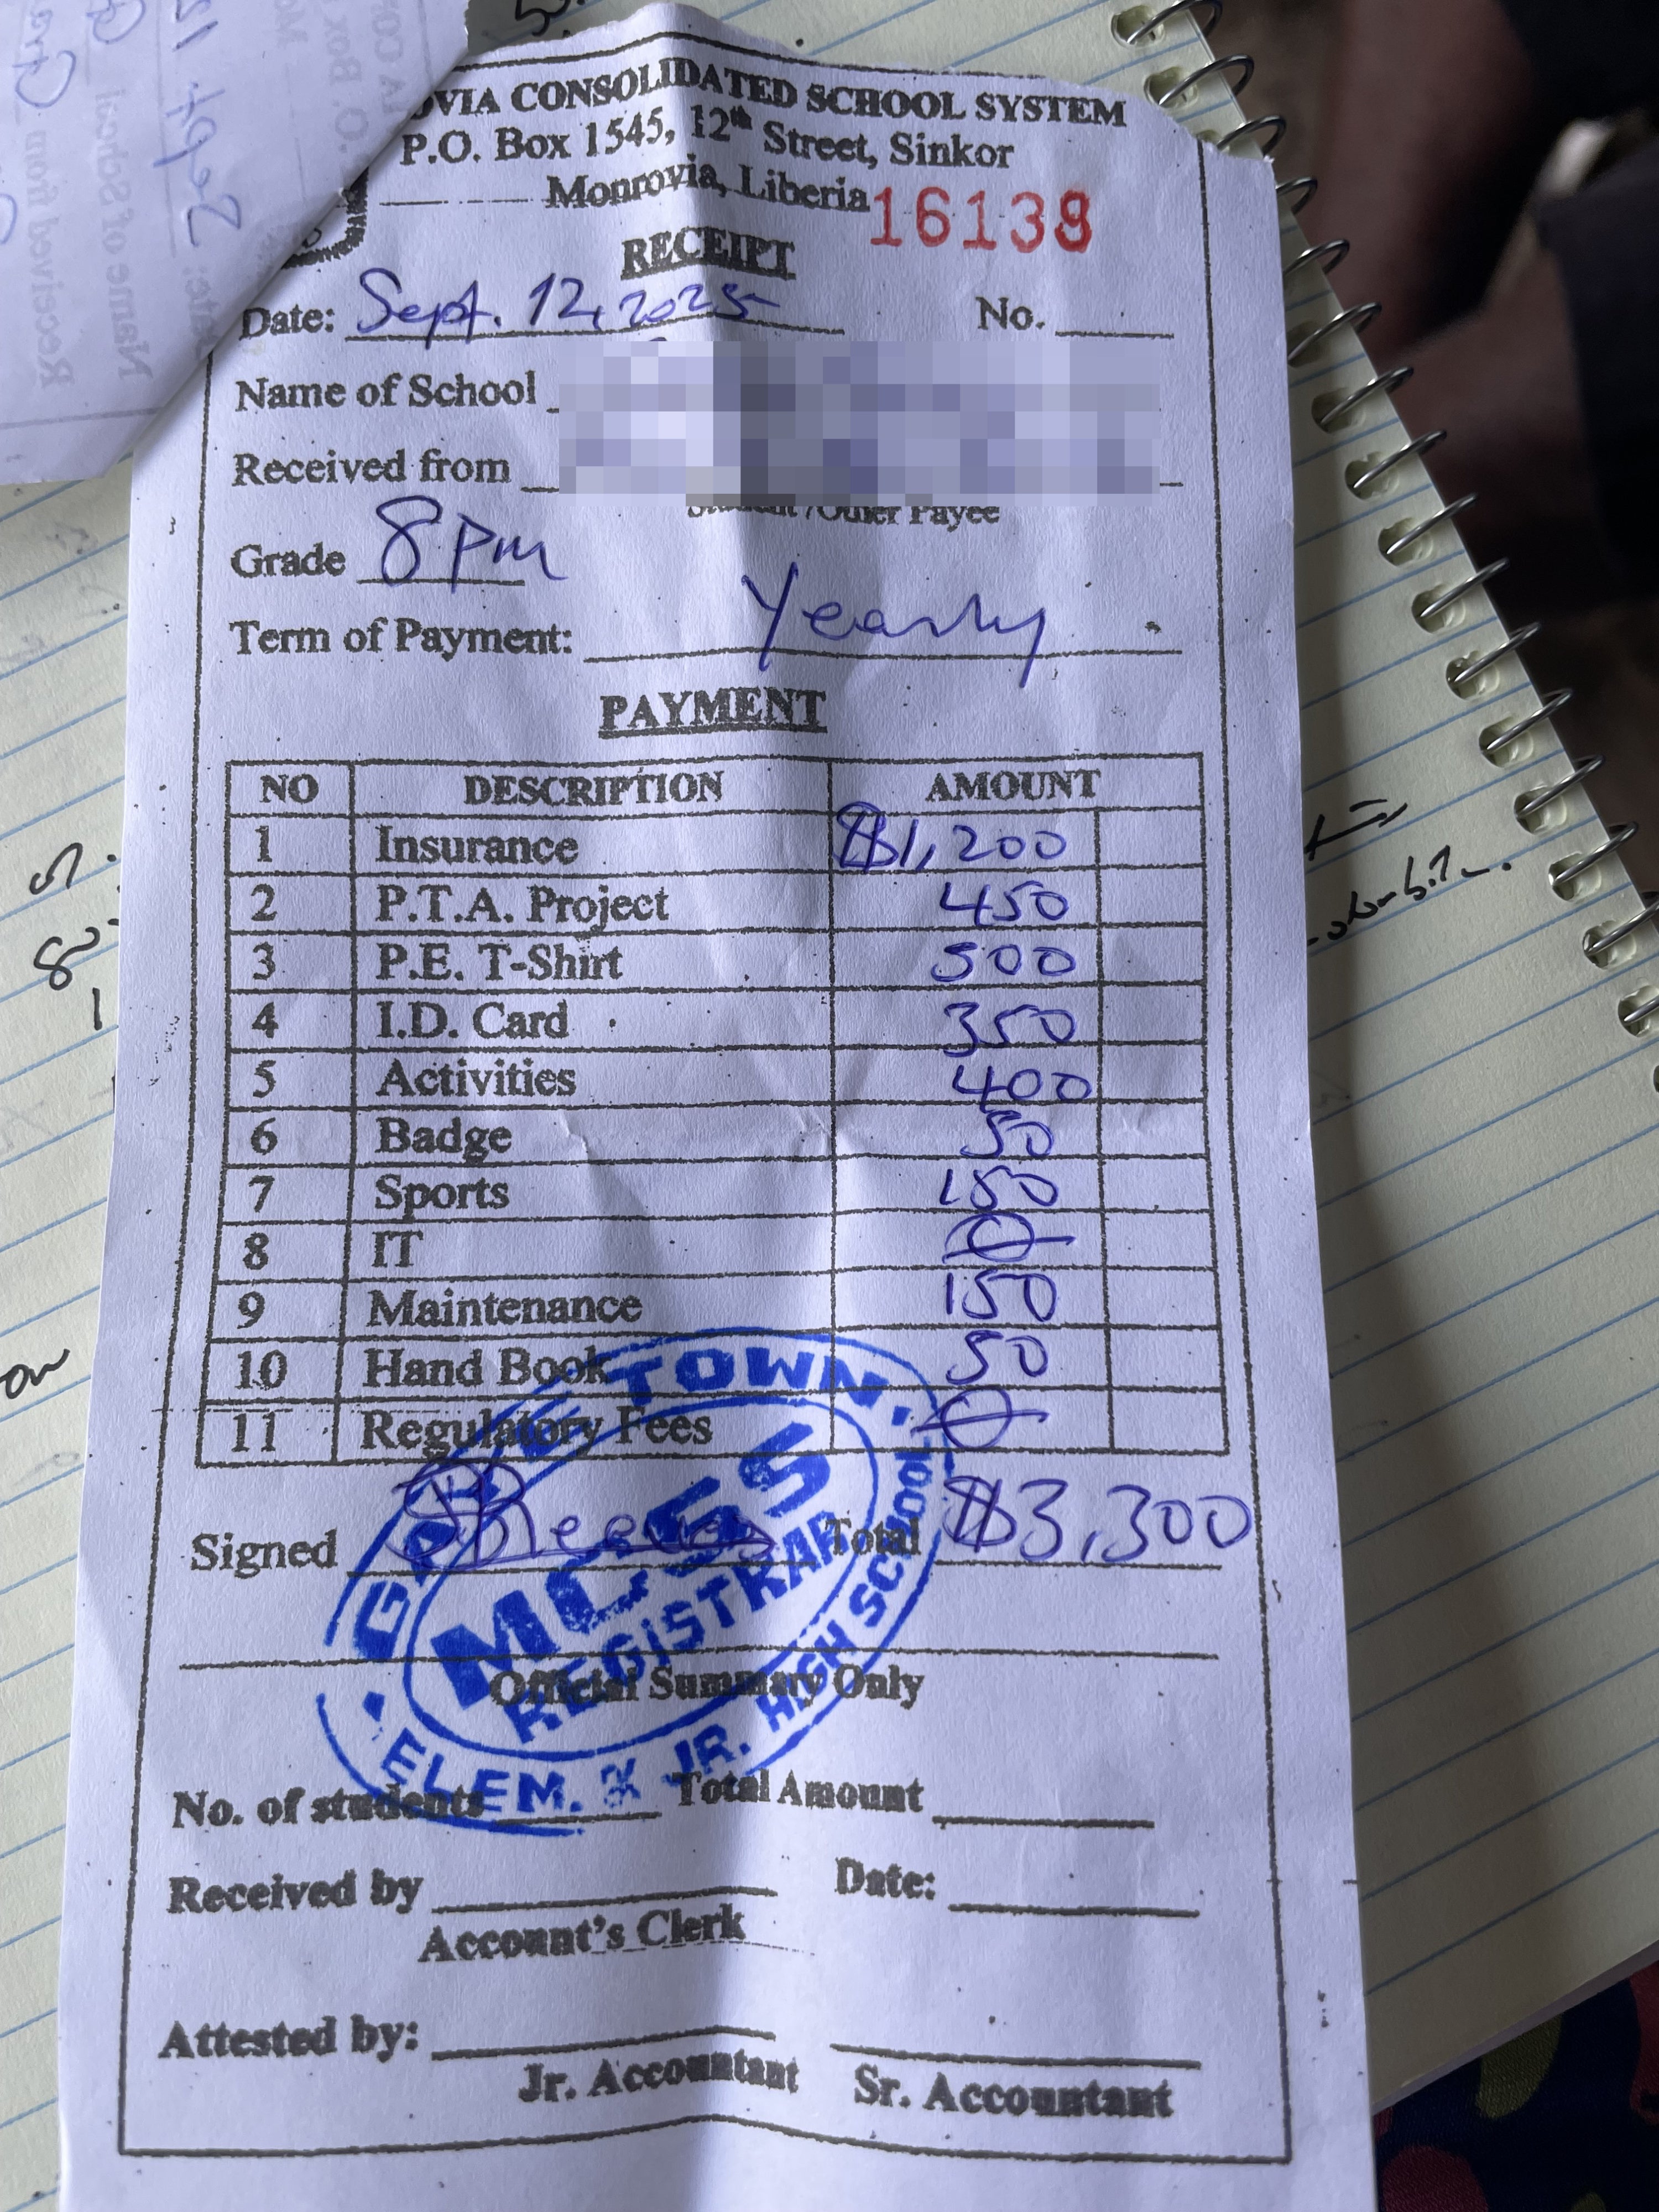 OVIA CONSOLIDATED SCHOOL SYSTEM
P.O. Box 1545, 12th Street, Sinkor
Monrovia, Liberia
16138
RECEIPT
Date: Sept. 12, 2025 No.
Name of School
Received from
Student/Other Payee
Grade 8 Pm
Term of Payment: Yearly
PAYMENT
NO DESCRIPTION AMOUNT
1 Insurance $1,200
2 P.T.A. Project 450
3 P.E. T-Shirt 500
4 I.D. Card 350
5 Activities 400
6 Badge 50
7 Sports 150
8 IT 0
9 Maintenance 150
10 Hand Book 50
11 Regulatory Fees 0
Signed Total $3,300
TOWN.
MCSS
REGISTRAR
ELEM. & JR. HIGH SCHOOL
Official Summary Only
No. of students Total Amount
Received by Date:
Account's Clerk
Attested by:
Jr. Accountant Sr. Accountant
Received from
Name of School